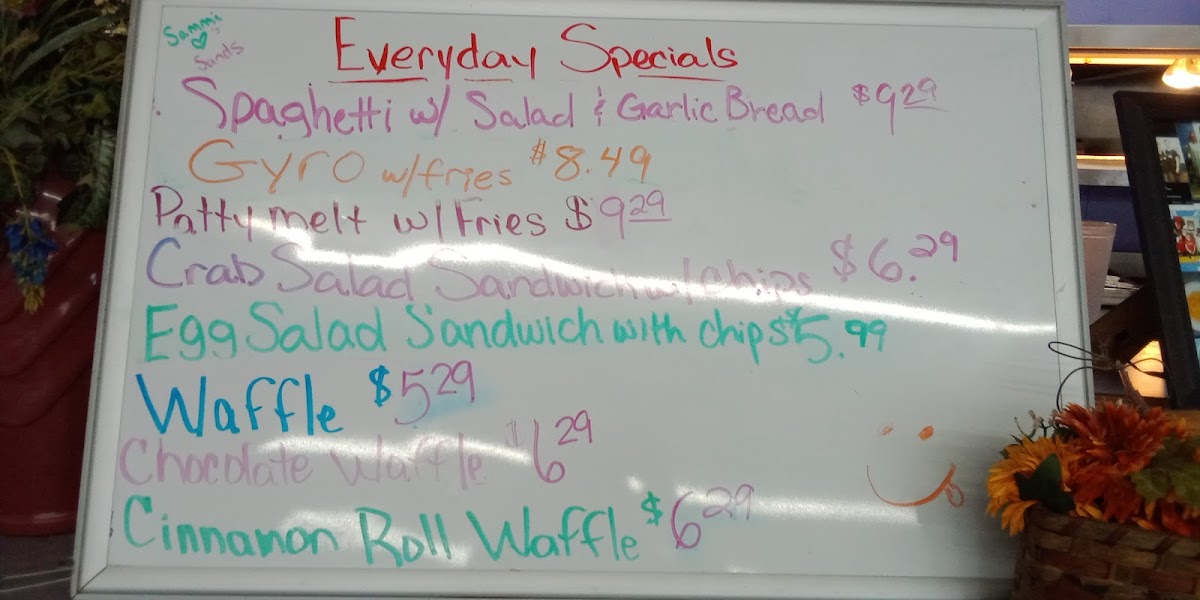 Sammi
Sands
Everyday Specials
Spaghetti w/ Salad & Garlic Bread $9.29
Gyro w/fries $8.49
Patty melt w/ Fries $9.29
Crab Salad Sandwich w/ chips $6.29
Egg Salad Sandwich with chips $5.99
Waffle $5.29
Chocolate Waffle $6.29
Cinnamon Roll Waffle $6.29